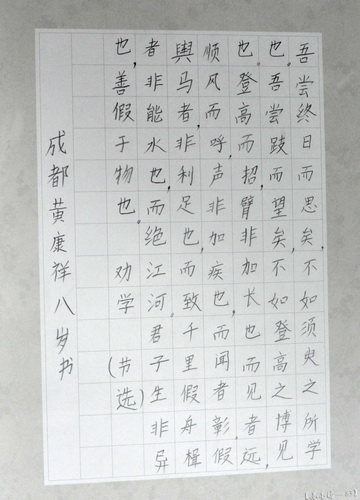 吾尝终日而思矣,不如须臾之所学
也。吾尝跂而望矣,不如登高之博见
也。登高而招,臂非加长也,而见者远,
顺风而呼,声非加疾也,而闻者彰。假
舆马者,非利足也,而致千里假舟楫
者非能水也,而绝江河。君子生非异
也,善假于物也。劝学(节选)
成都黄康祥八岁书